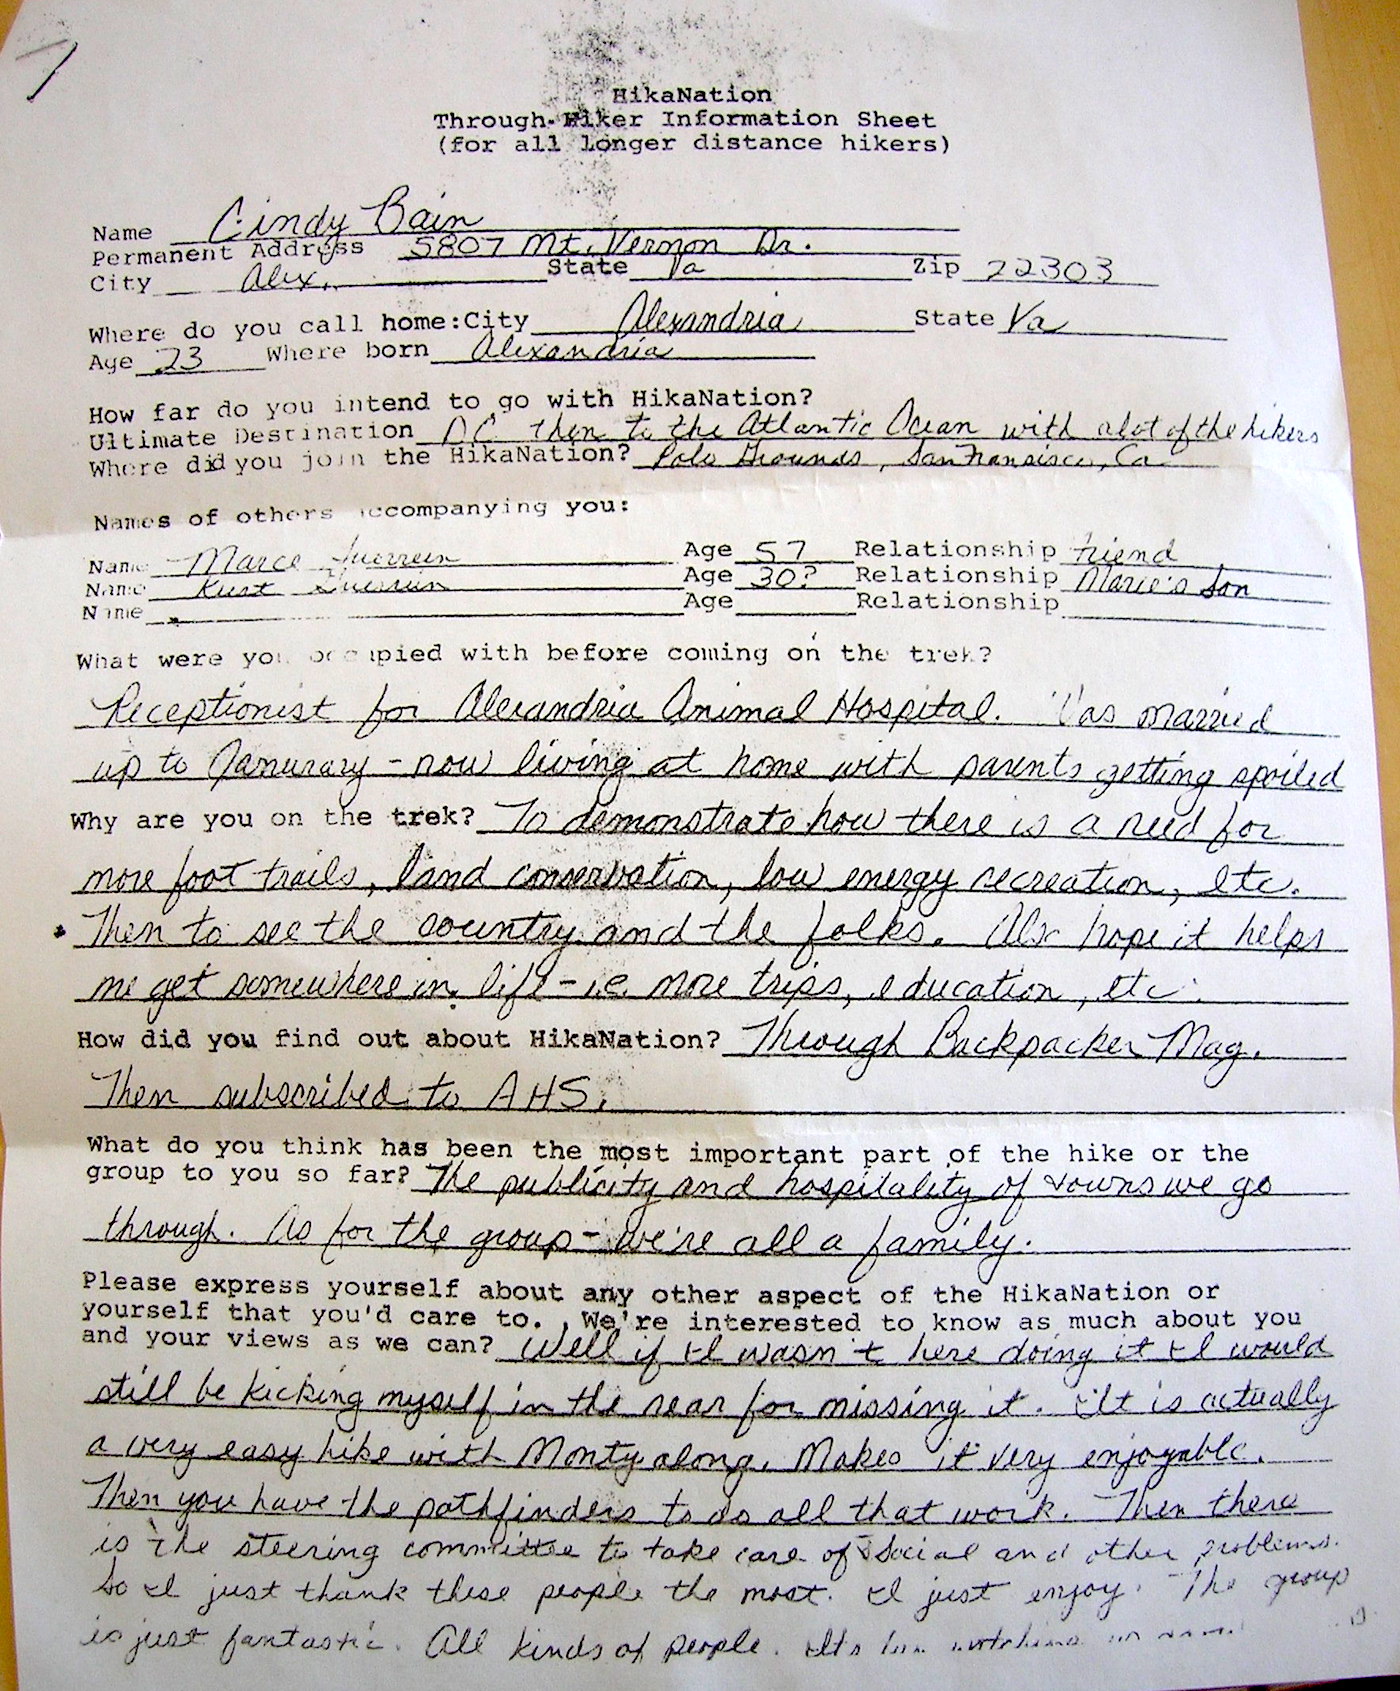 HikaNation
Through-Hiker Information Sheet
(for all longer distance hikers)
Name Cindy Bain
Permanent Address 5807 Mt. Vernon Dr.
City Alex. State Va Zip 22303
Where do you call home:City Alexandria State Va
Age 23 Where born Alexandria
How far do you intend to go with HikaNation?
Ultimate Destination DC then to the Atlantic Ocean with alot of the hikers
Where did you join the HikaNation? Polo Grounds, San Fransisco, Ca
Names of others accompanying you:
Name Age 57 Relationship friend
Name Kurt Age 30? Relationship Marie's Son
Name Age Relationship
What were you occupied with before coming on the trek?
Receptionist for Alexandria Animal Hospital. Was married
up to Janurary - now living at home with parents getting spoiled
Why are you on the trek? To demonstrate how there is a need for
more foot trails, land conservation, low energy recreation, etc.
Then to see the country and the folks. Also hope it helps
me get somewhere in life - i.e. more trips, education, etc.
How did you find out about HikaNation? Through Backpacker Mag.
Then subscribed to AHS.
What do you think has been the most important part of the hike or the
group to you so far? The publicity and hospitality of towns we go
through. As for the group - we're all a family.
Please express yourself about any other aspect of the HikaNation or
yourself that you'd care to. We're interested to know as much about you
and your views as we can? Well if I wasn't here doing it I would
still be kicking myself in the rear for missing it. It is actually
a very easy hike with Monty along. Makes it very enjoyable.
Then you have the pathfinders to do all that work. Then there
is the steering committee to take care of social and other problems.
So I just thank these people the most. I just enjoy. The group
is just fantastic. All kinds of people. Its